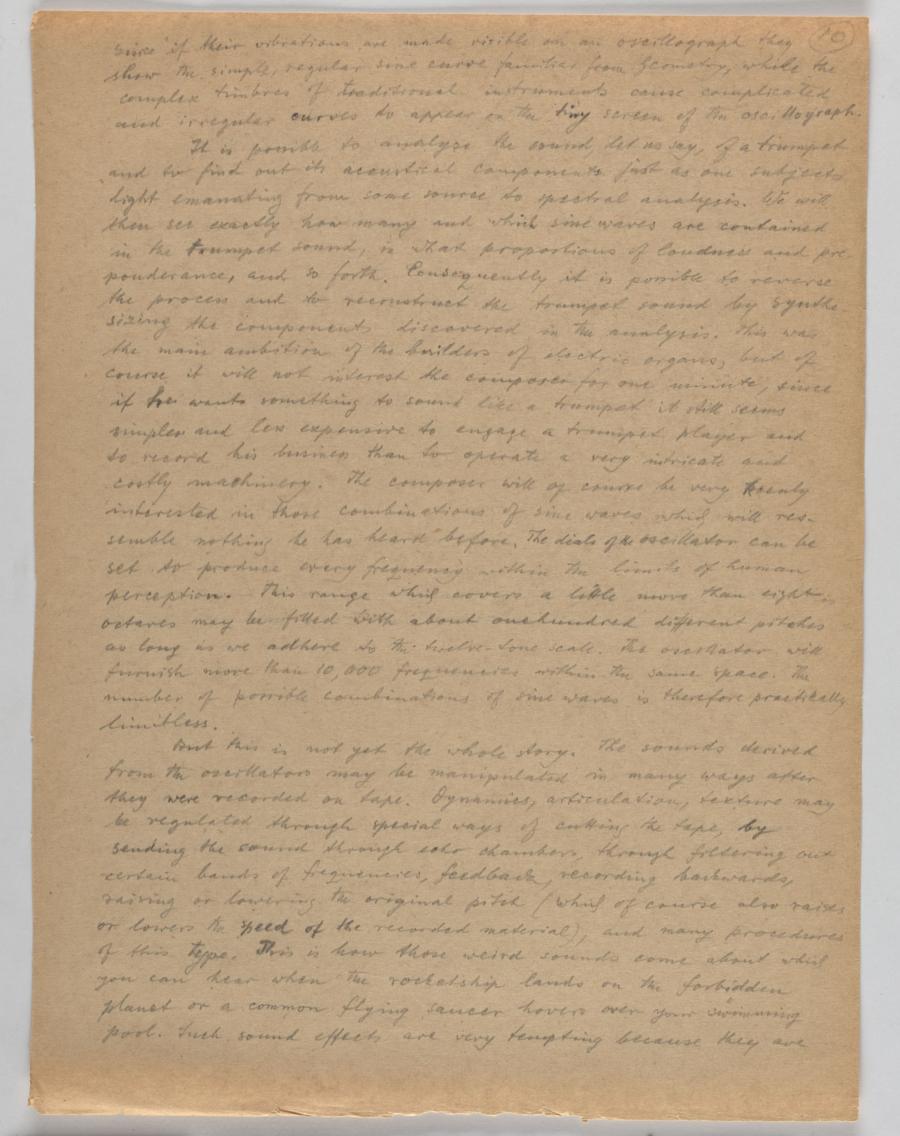 10
since if their vibrations are made visible on an oscillograph they
show the simple, regular sine curve familiar from Geometry, while the
complex timbres of traditional instruments cause complicated
and irregular curves to appear on the tiny screen of the oscillograph.
It is possible to analyze the sound, let us say, of a trumpet
and to find out its acoustical components just as one subjects
light emanating from some source to spectral analysis. We will
then see exactly how many and which sine waves are contained
in the trumpet sound, in what proportions of loudness and pre-
ponderance, and so forth. Consequently it is possible to reverse
the process and to reconstruct the trumpet sound by synthe
sizing the components discovered in the analysis. This was
the main ambition of the builders of electric organs, but of
course it will not interest the composer for one minute, since
if he wants something to sound like a trumpet it still seems
simpler and less expensive to engage a trumpet player and
to record his business than to operate a very intricate and
costly machinery. The composer will of course be very keenly
interested in those combinations of sine waves which will res-
semble nothing he has heard before. The dials of the oscillator can be
set to produce every frequency within the limits of human
perception. This range which covers a little more than eight
octaves may be filled with about onehundred different pitches
as long as we adhere to the twelve-tone scale. The oscillator will
furnish more than 10,000 frequencies within the same space. The
number of possible combinations of sine waves is therefore practically
limitless.
But this is not yet the whole story. The sounds derived
from the oscillators may be manipulated in many ways after
they were recorded on tape. Dynamics, articulation, texture may
be regulated through special ways of cutting the tape, by
sending the sound through echo chambers, through filtering out
certain bands of frequencies, feedback, recording backwards,
raising or lowering the original pitch (which of course also raises
or lowers the speed of the recorded material), and many procedures
of this type. This is how those weird sounds come about which
you can hear when the rocketship lands on the forbidden
planet or a common flying saucer hovers over your swimming
pool. Such sound effects are very tempting because they are